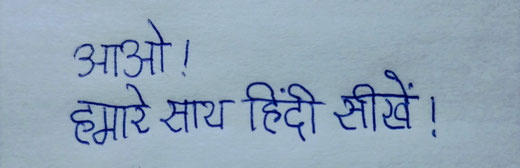 आओ!
हमारे साथ हिंदी सीखें!